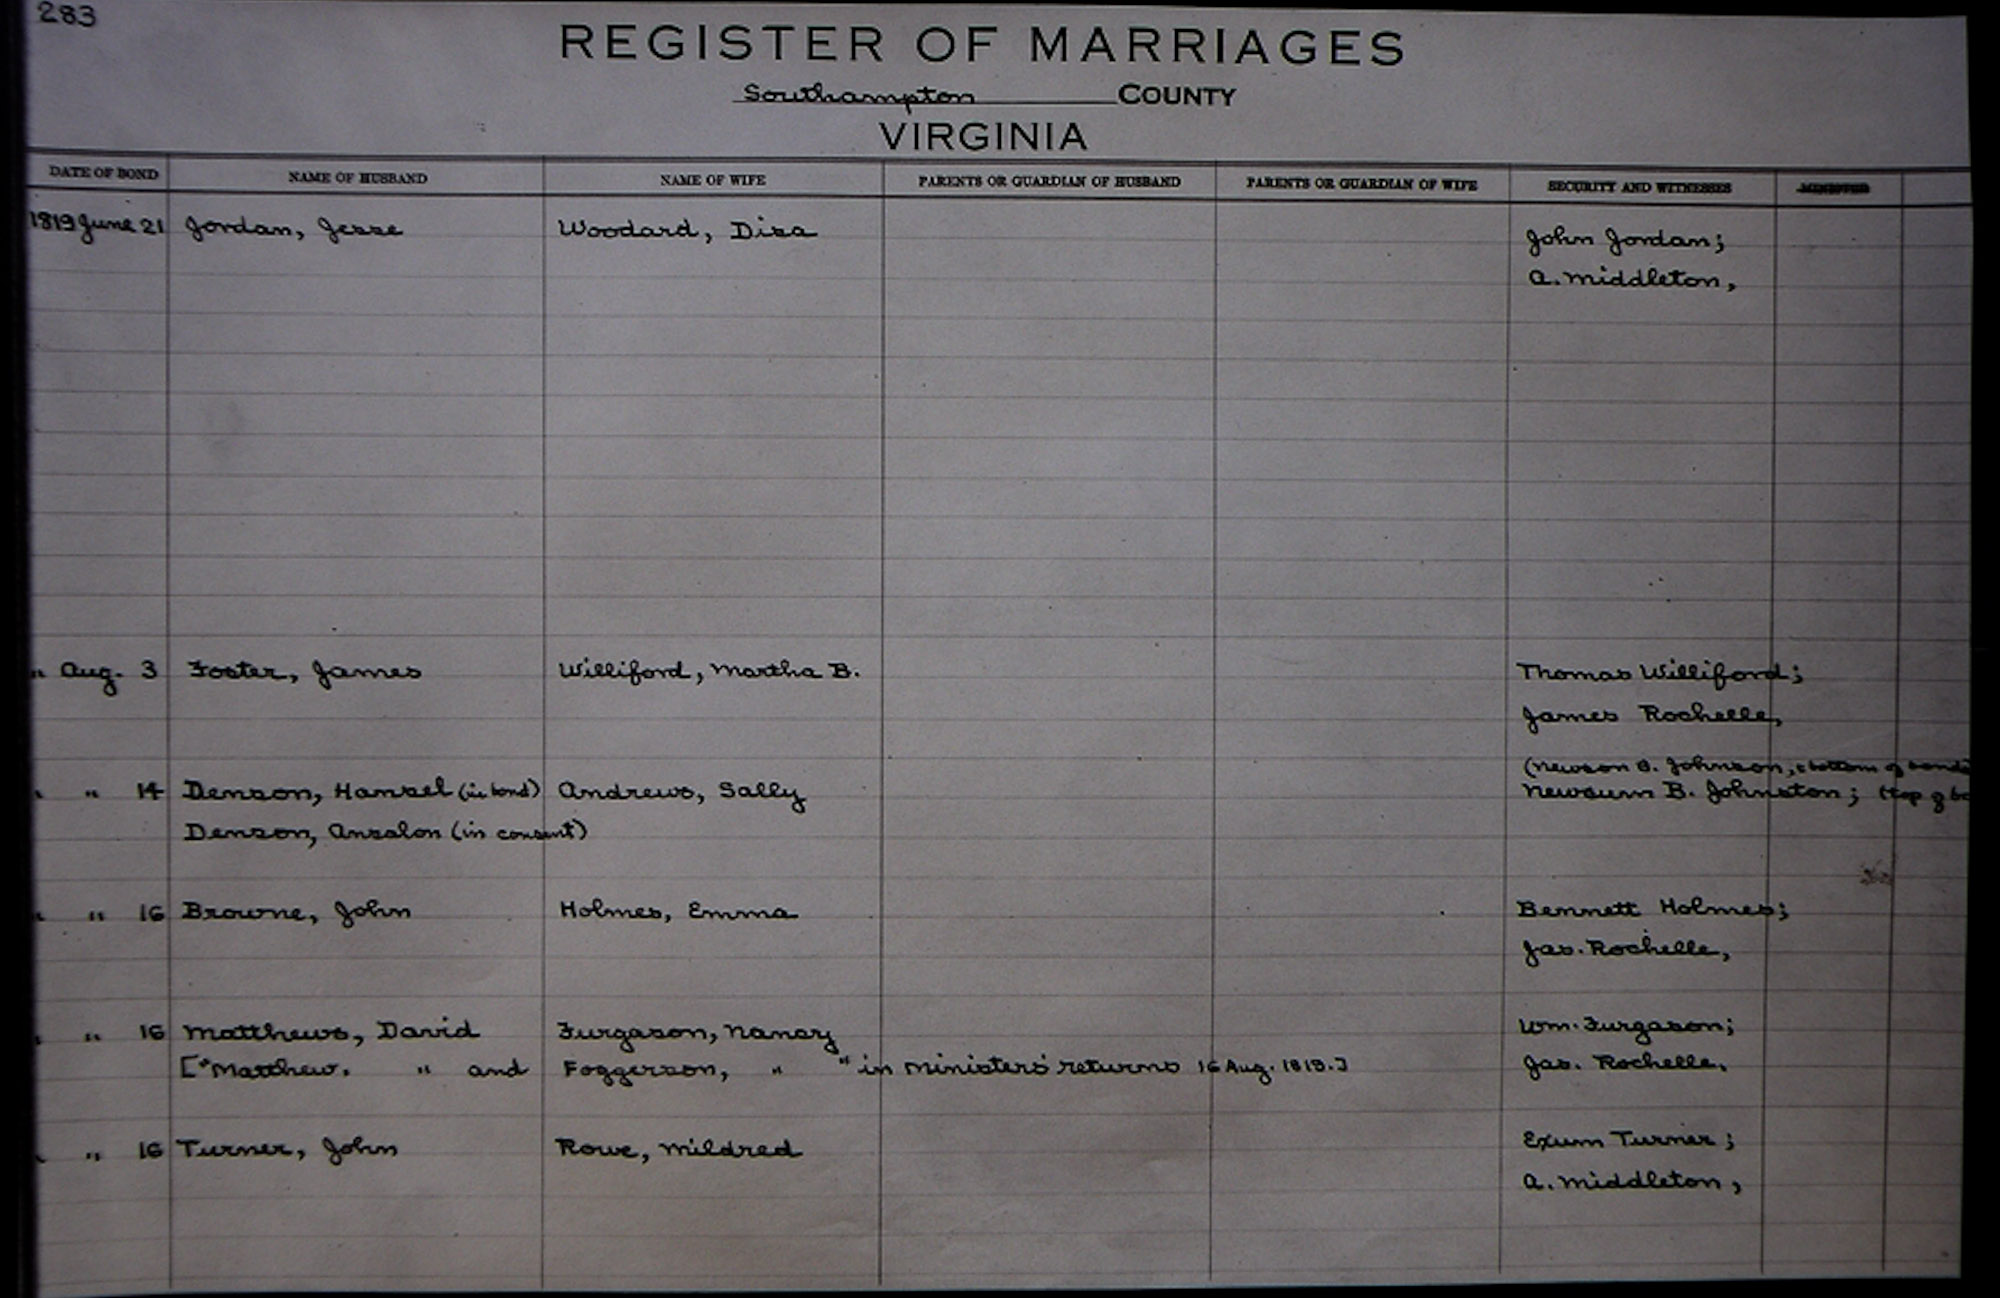 283
REGISTER OF MARRIAGES
Southampton COUNTY
VIRGINIA
DATE OF BOND NAME OF HUSBAND NAME OF WIFE PARENTS OR GUARDIAN OF HUSBAND PARENTS OR GUARDIAN OF WIFE SECURITY AND WITNESSES MINISTER
1819 June 21 Jordan, Jesse Woodard, Disa John Jordan;
A. Middleton,
" Aug. 3 Foster, James Williford, Martha B. Thomas Williford;
James Rochelle,
(Newson B. Johnson, bottom of bond
" " 14 Denson, Hansel (in bond) Andrews, Sally Newsum B. Johnston; (top of bo
Denson, Ansalon (in consent)
" " 16 Browne, John Holmes, Emma Bennett Holmes;
Jas. Rochelle,
" " 16 Matthews, David Furgason, Nancy Wm. Furgason;
["Matthew, " and Foggerson, " " in ministers' returns 16 Aug. 1819.] Jas. Rochelle,
" " 16 Turner, John Rowe, Mildred Exum Turner;
A. Middleton,